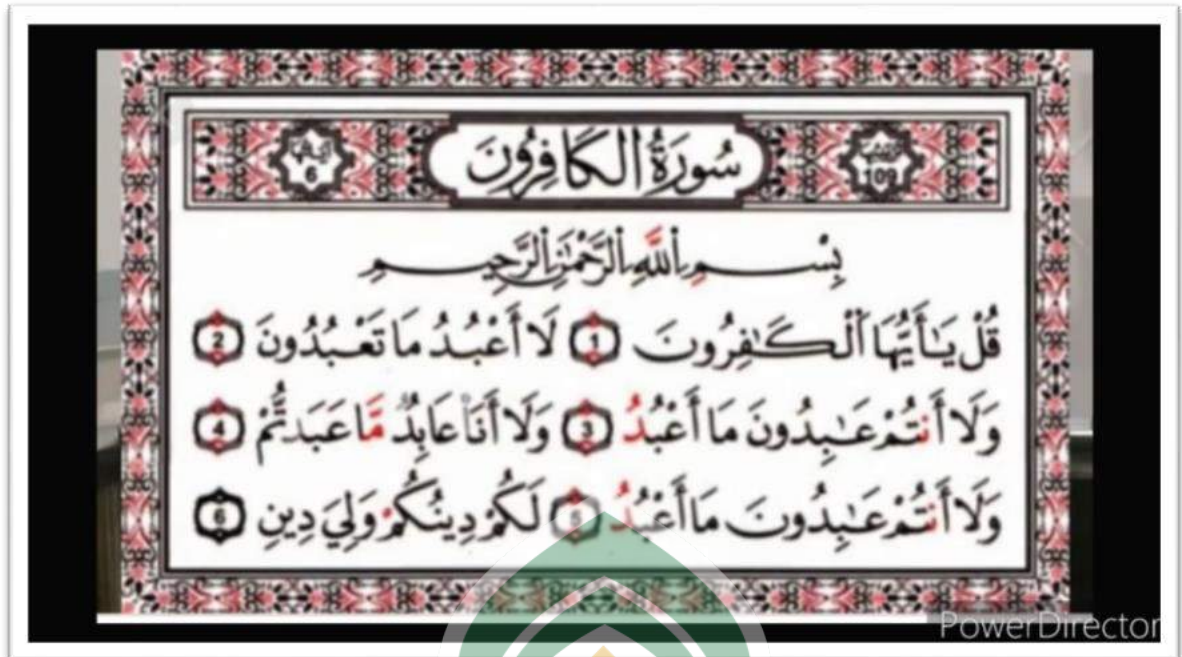 سُورَةُ الكَافِرُونَ
109
6
بِسْمِ اللَّهِ الرَّحْمَٰنِ الرَّحِيمِ
قُلْ يَـٰأَيُّهَا ٱلْكَـٰفِرُونَ 1 لَا أَعْبُدُ مَا تَعْبُدُونَ 2
وَلَا أَنتُمْ عَـٰبِدُونَ مَا أَعْبُدُ 3 وَلَا أَنَا۠ عَابِدٌ مَّا عَبَدتُّمْ 4
وَلَا أَنتُمْ عَـٰبِدُونَ مَا أَعْبُدُ 5 لَكُمْ دِينُكُمْ وَلِيَ دِينِ 6
PowerDirector